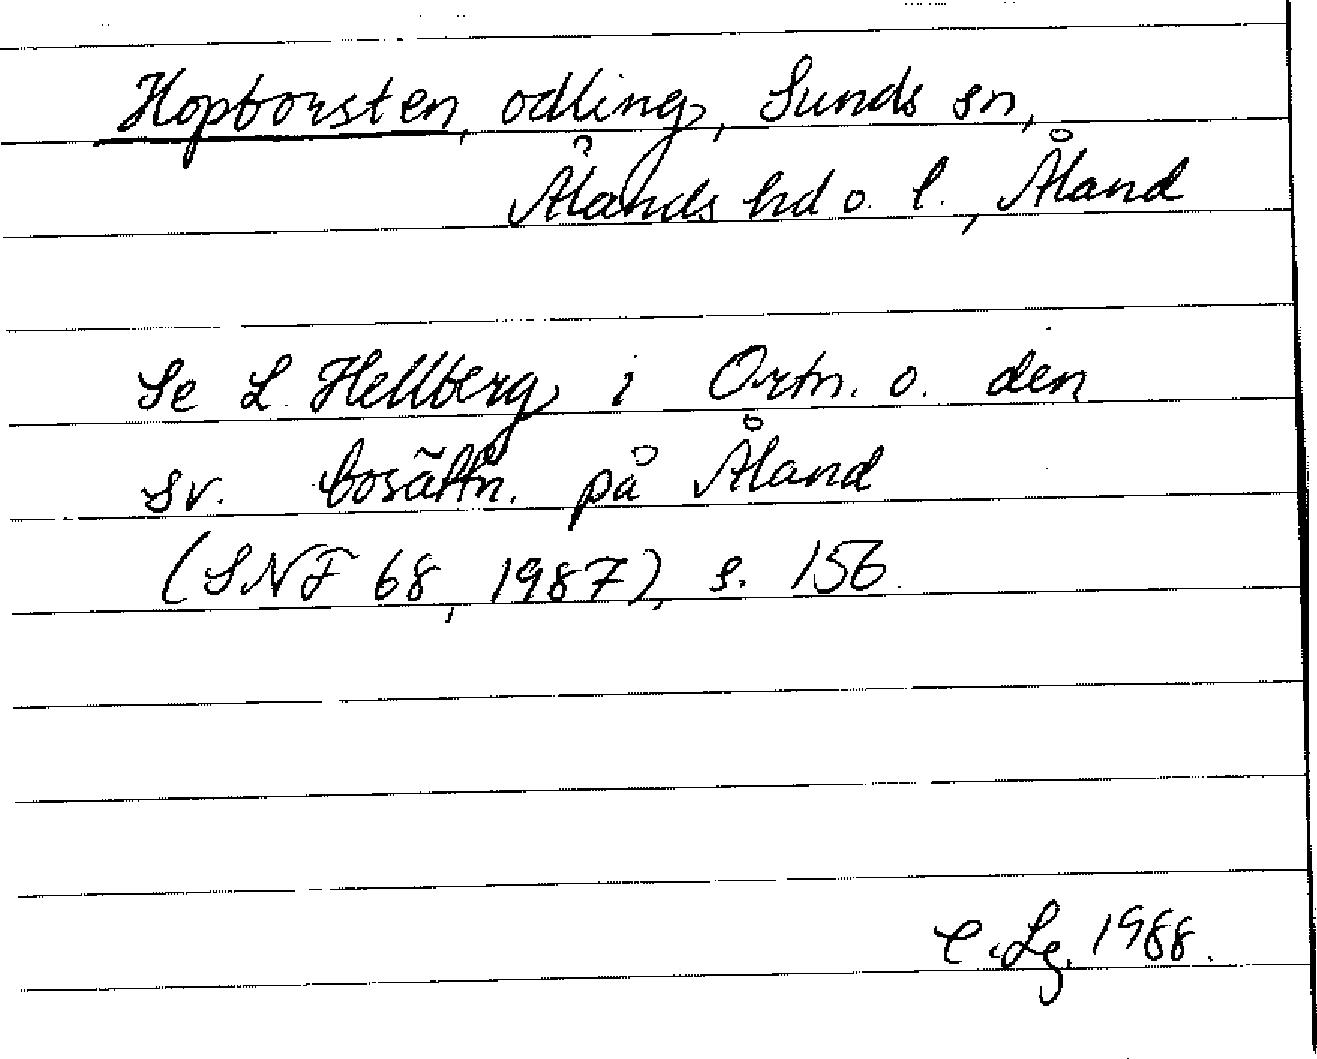 Hopborsten, odling, Sunds sn,
Ålands hd o. l., Åland
Se L. Hellberg i Ortn. o. den
sv. bosättn. på Åland
(SNF 68, 1987), s. 156.
C. Lg. 1988.